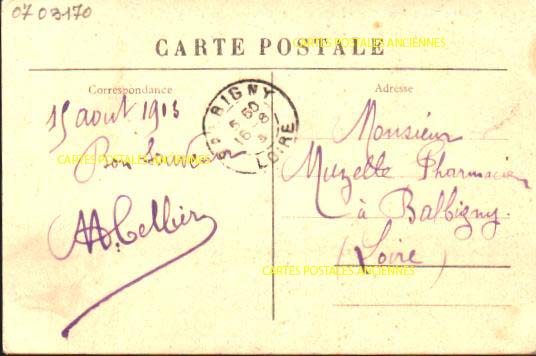 07 03170
CARTE POSTALE
CARTES POSTALES ANCIENNES
Correspondance
Adresse
15 aout 1913
Bon Souvenir
CARTES POSTALES ANCIENNES
BIGNY
LOIRE
Monsieur
Muzelle Pharmacien
à Balbigny.
(Loire)
CARTES POSTALES ANCIENNES